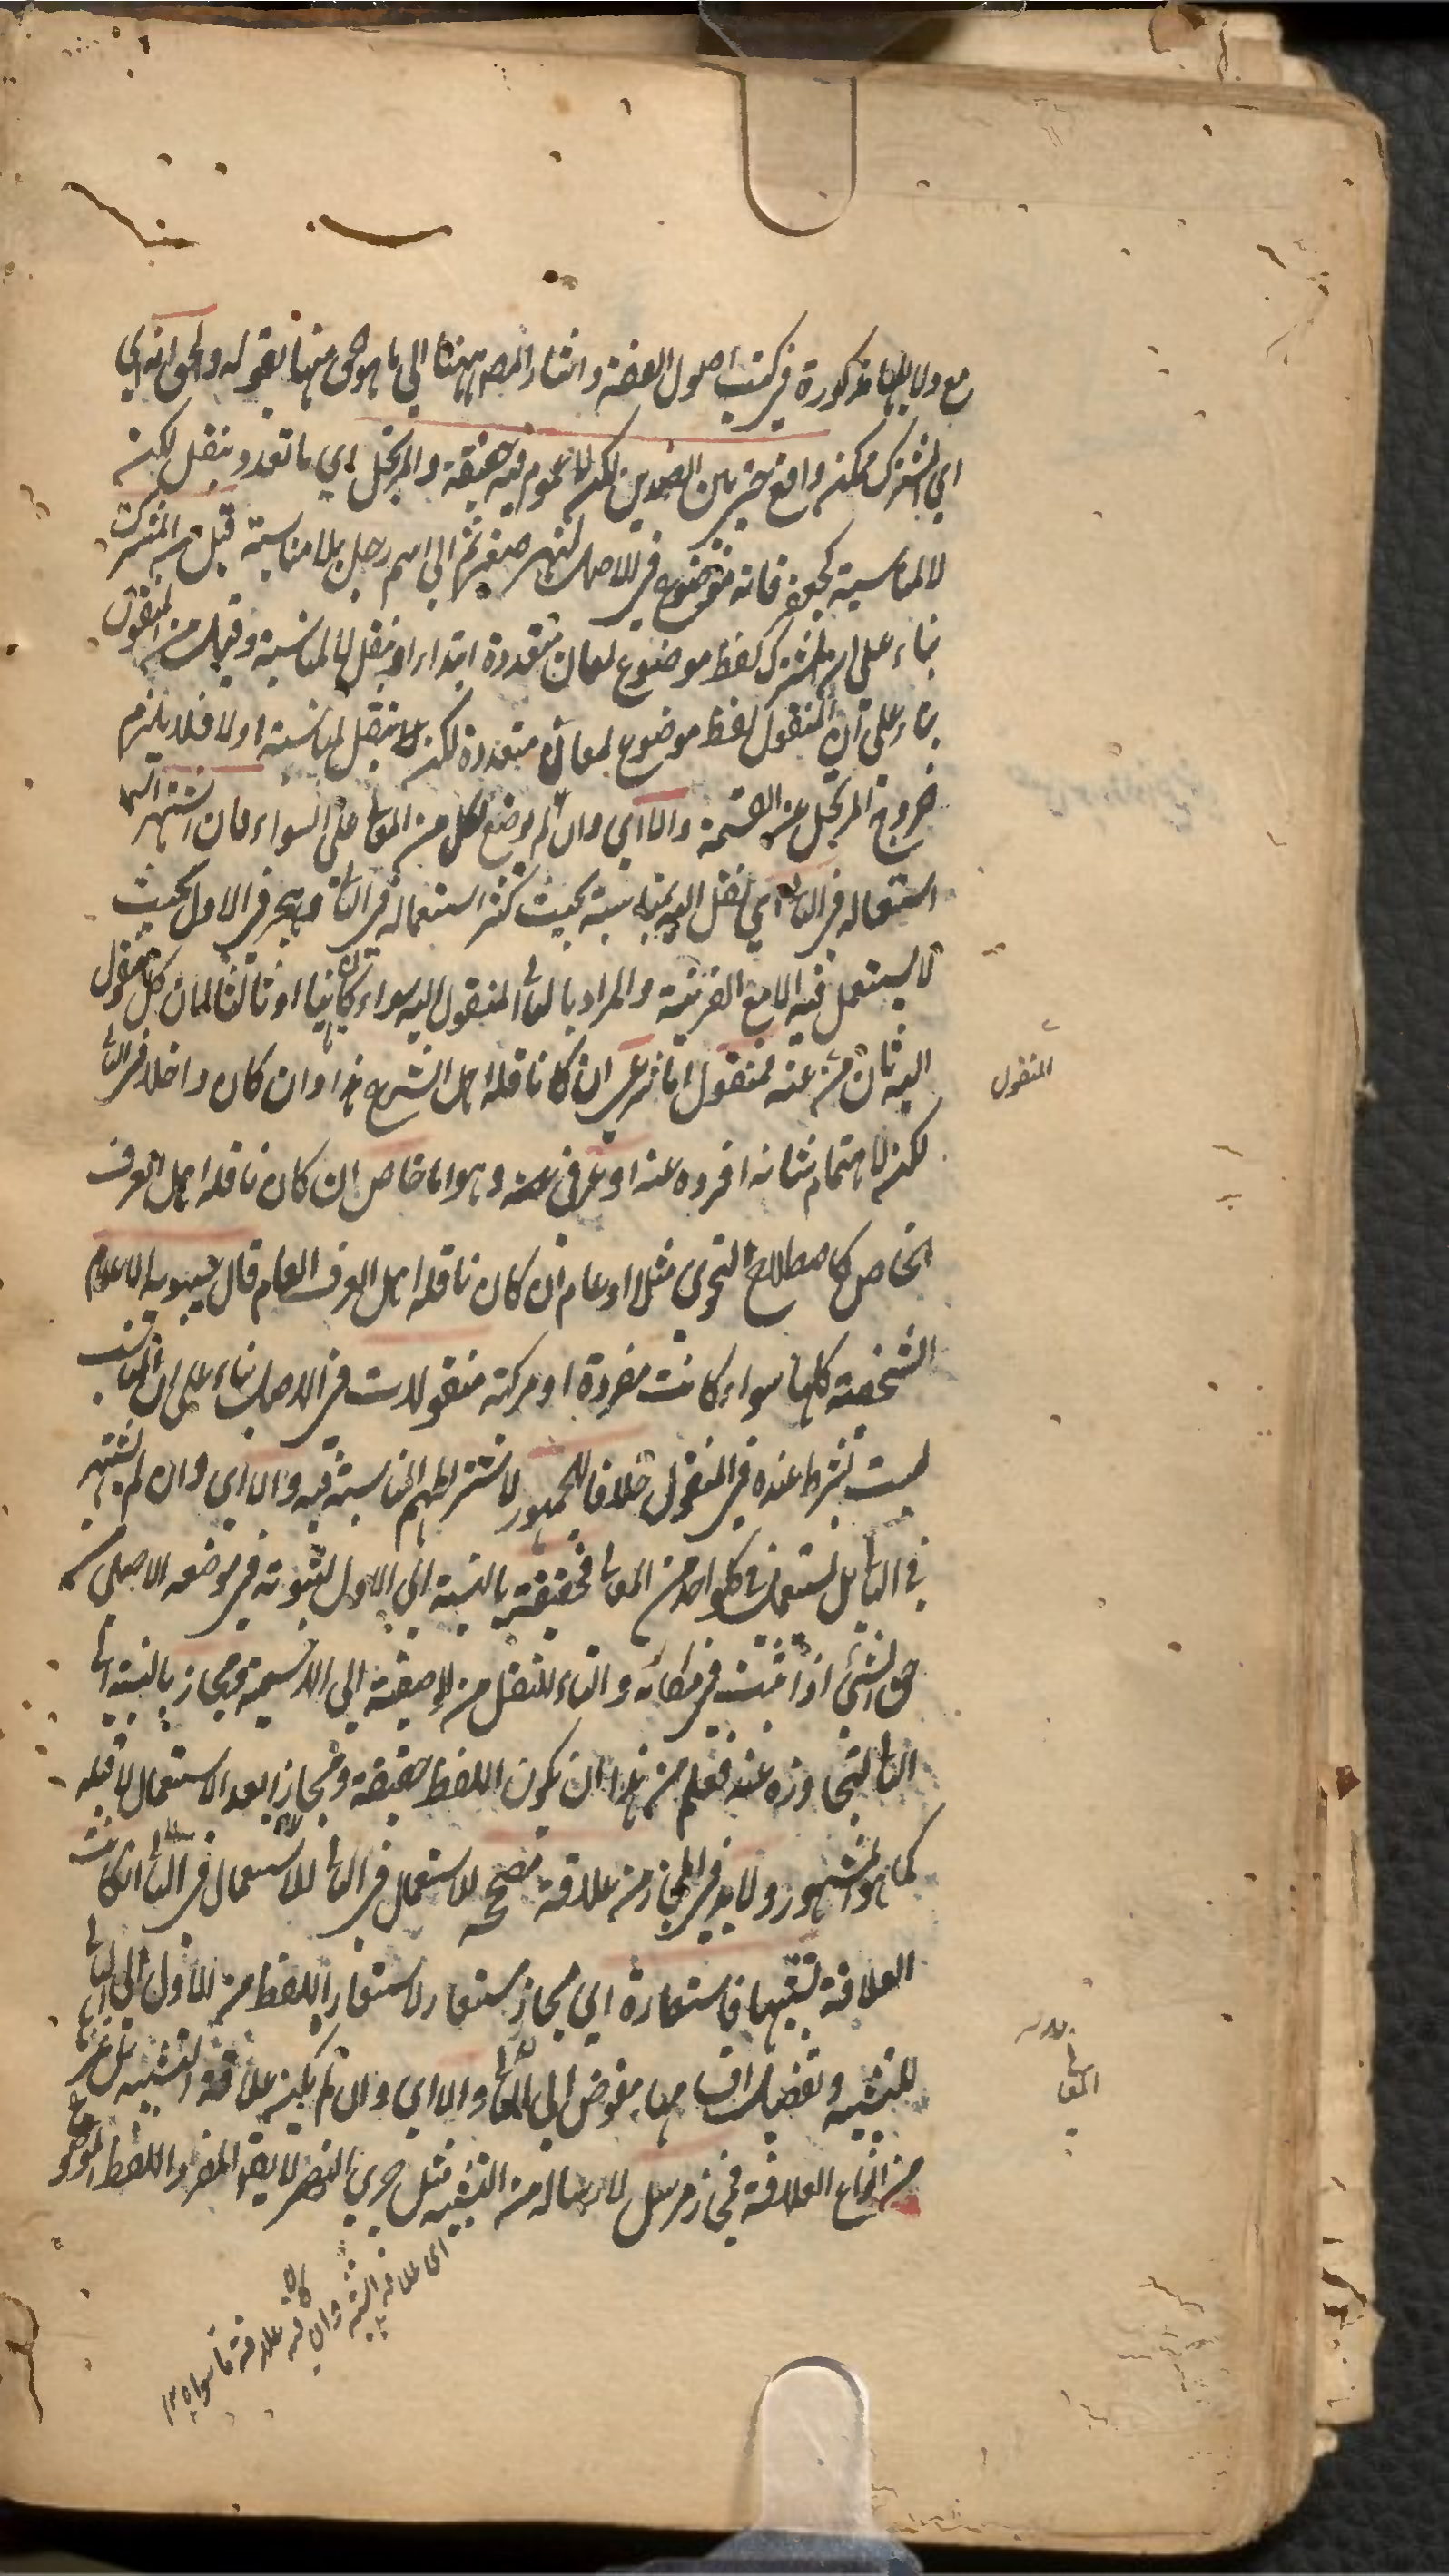 مع دلايلها مذكورة في كتب اصول الفقه واشار المصه ههنا الى ما هو الحق منها بقوله والحق انه اي
اي المشترك ممكن واقع حتى بين الضدين لكن لا عموم فيه حقيقة والمرتجل اي ما تعدد وينقل لكن
لا لمناسبة كجعفر فانه موضوع في الاصل لنهر صغير ثم الى اسم رجل بلا مناسبة قيل من المشترك
بناء على ان المشترك لفظ موضوع لمعان متعددة ابتداء او ينقل لا لمناسبة وقيل من المنقول
بناء على ان المنقول لفظ موضوع لمعان متعددة لكن ينقل لمناسبة اولا فلا يلزم
خروج المرتجل عن القسمة والا اي وان لم يوضع لكل من المعاني على السواء فان اشتهر
استعماله في الثاني اي نقل اليه بمناسبة بحيث كثر استعماله في الثاني وهجر في الاول بحيث
لا يستعمل فيه الا مع القرينة والمراد بالثاني المنقول اليه سواء كان ثانيا او ثالثا لان كل منقول
اليه ثان من عنه فمنقول اما شرعي ان كان ناقله اهل الشرع هذا وان كان داخلا في الثاني
لكن لاهتمام شانه افرده عنه او عرفي وهو اما خاص ان كان ناقله اهل العرف
الخاص كاصطلاح النحوي مثلا او عام ان كان ناقله اهل العرف العام قال سيبويه الاعلام
الشخصية كلها سواء كانت مفردة او مركبة منقولات في الاصل بناء على ان المناسبة
ليست بشرط عنده في المنقول خلافا للجمهور لاشتراطهم المناسبة فيه والا اي وان لم يشتهر
في الثاني بل يستعمل في كل واحد من المعاني فحقيقة بالنسبة الى الاول لثبوته في موضعه الاصلي من
حق الشيء اذا ثبت في مكانه والتاء للنقل من الوصفية الى الاسمية ومجاز بالنسبة الى
الثاني لتجاوزه عنه فعلم من هذا ان يكون اللفظ حقيقة ومجازا بعد الاستعمال لا قبله
كما هو المشهور ولا بد في المجاز من علاقة مصححة للاستعمال في الثاني ان كانت
العلاقة تشبيها فاستعارة اي مجاز مستعار لاستعار اللفظ من الاول الى الثاني
للتشبيه وتفصيل اقسامها مفوض الى المعاني والا اي وان لم يكن علاقة التشبيه بل غيرها
من انواع العلاقة فمجاز مرسل لارساله من التشبيه مثل جري النهر لا يقر المفرد اللفظ الموضوع
المنقول
المعاني
اي علاقة التشبيه وان كان فيه علاقة ما سواه ١٢